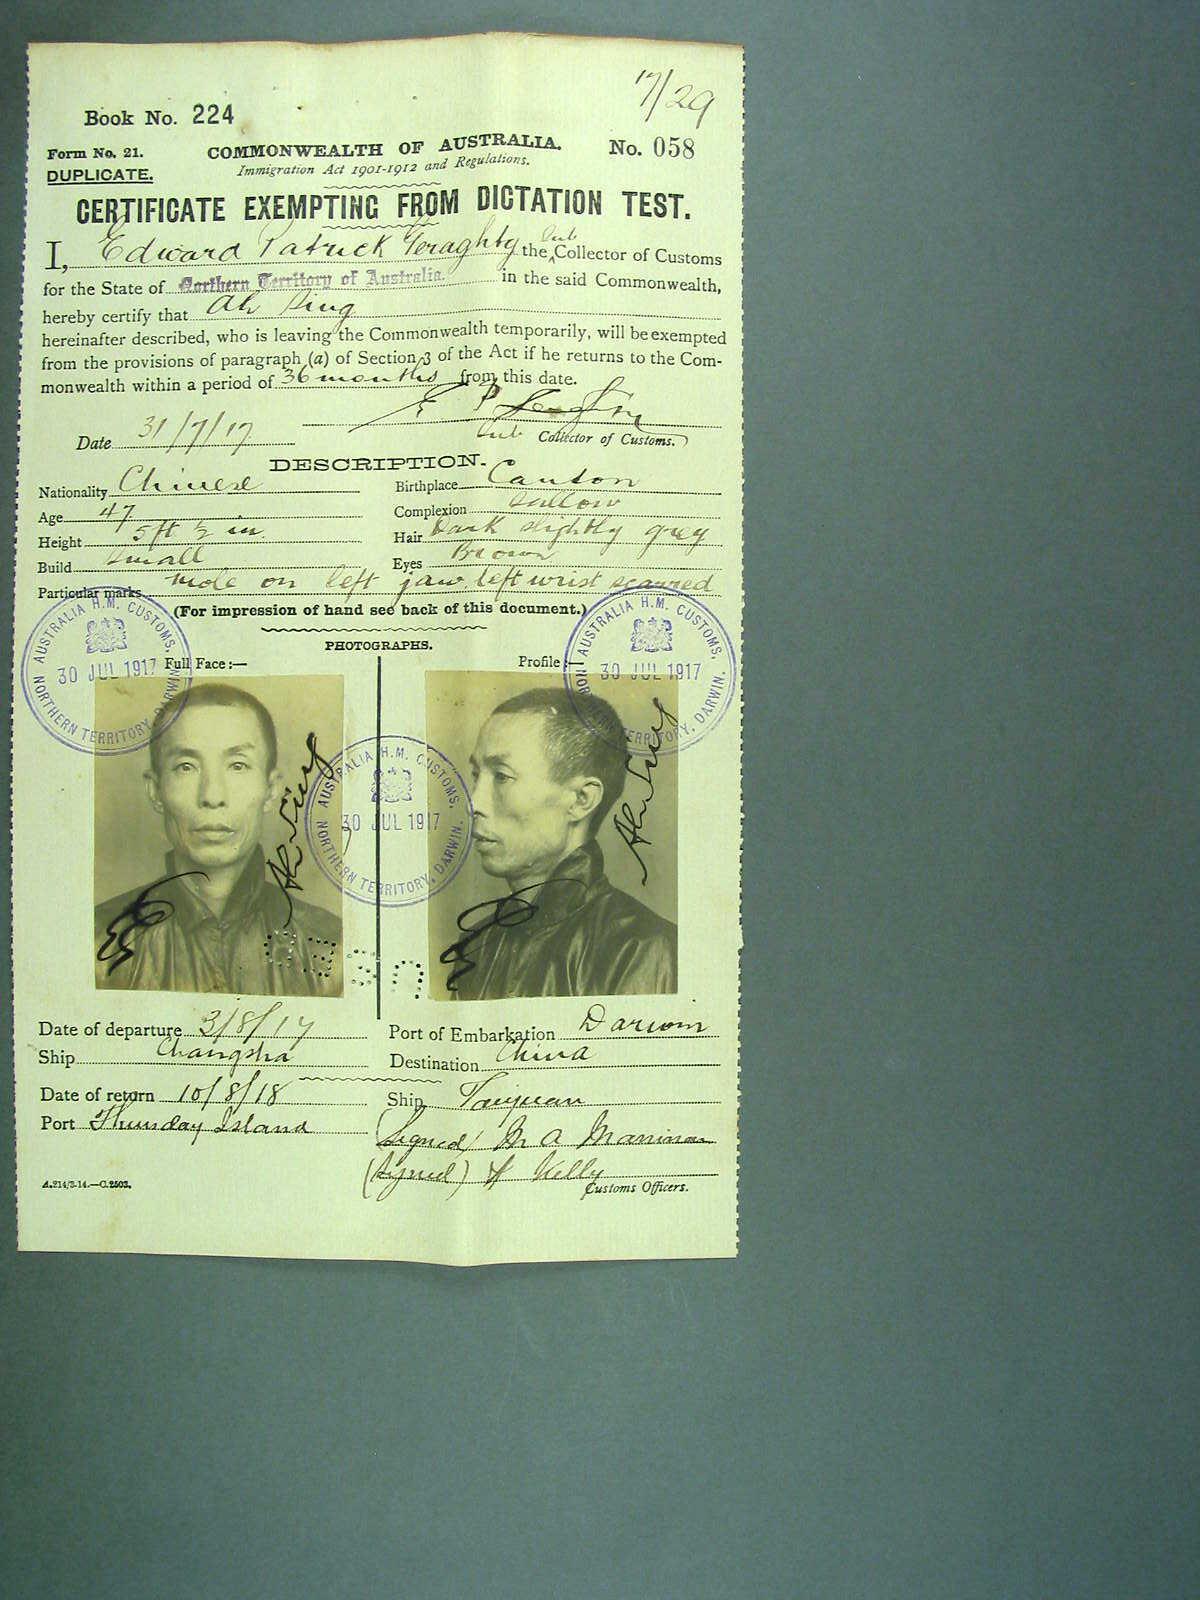 17/29
Book No. 224
Form No. 21.
COMMONWEALTH OF AUSTRALIA.
No. 058
DUPLICATE.
Immigration Act 1901-1912 and Regulations.
CERTIFICATE EXEMPTING FROM DICTATION TEST.
I, Edward Patrick Geraghty the Sub Collector of Customs
for the State of Northern Territory of Australia. in the said Commonwealth,
hereby certify that Ah Sing
hereinafter described, who is leaving the Commonwealth temporarily, will be exempted
from the provisions of paragraph (a) of Section 3 of the Act if he returns to the Com-
monwealth within a period of 36 months from this date.
Date 31/7/17
Sub Collector of Customs.
DESCRIPTION.
Nationality Chinese
Birthplace Canton
Age 47
Complexion Sallow
Height 5ft ½ in.
Hair Dark slightly grey
Build Small
Eyes Brown
Particular marks mole on left jaw. left wrist scarred
(For impression of hand see back of this document.)
PHOTOGRAPHS.
Full Face:—
Profile:—
AUSTRALIA H.M. CUSTOMS,
30 JUL 1917
NORTHERN TERRITORY, DARWIN.
AUSTRALIA H.M. CUSTOMS,
30 JUL 1917
NORTHERN TERRITORY, DARWIN.
AUSTRALIA H.M. CUSTOMS,
30 JUL 1917
NORTHERN TERRITORY, DARWIN.
Ah Sing
Ah Sing
USED
Date of departure 3/8/17
Port of Embarkation Darwin
Ship Changsha
Destination China
Date of return 10/8/18
Ship Taiyuan
Port Thursday Island
(Signed) M A
(Signed) Kelly
Customs Officers.
A.214/3-14.—C.2503.